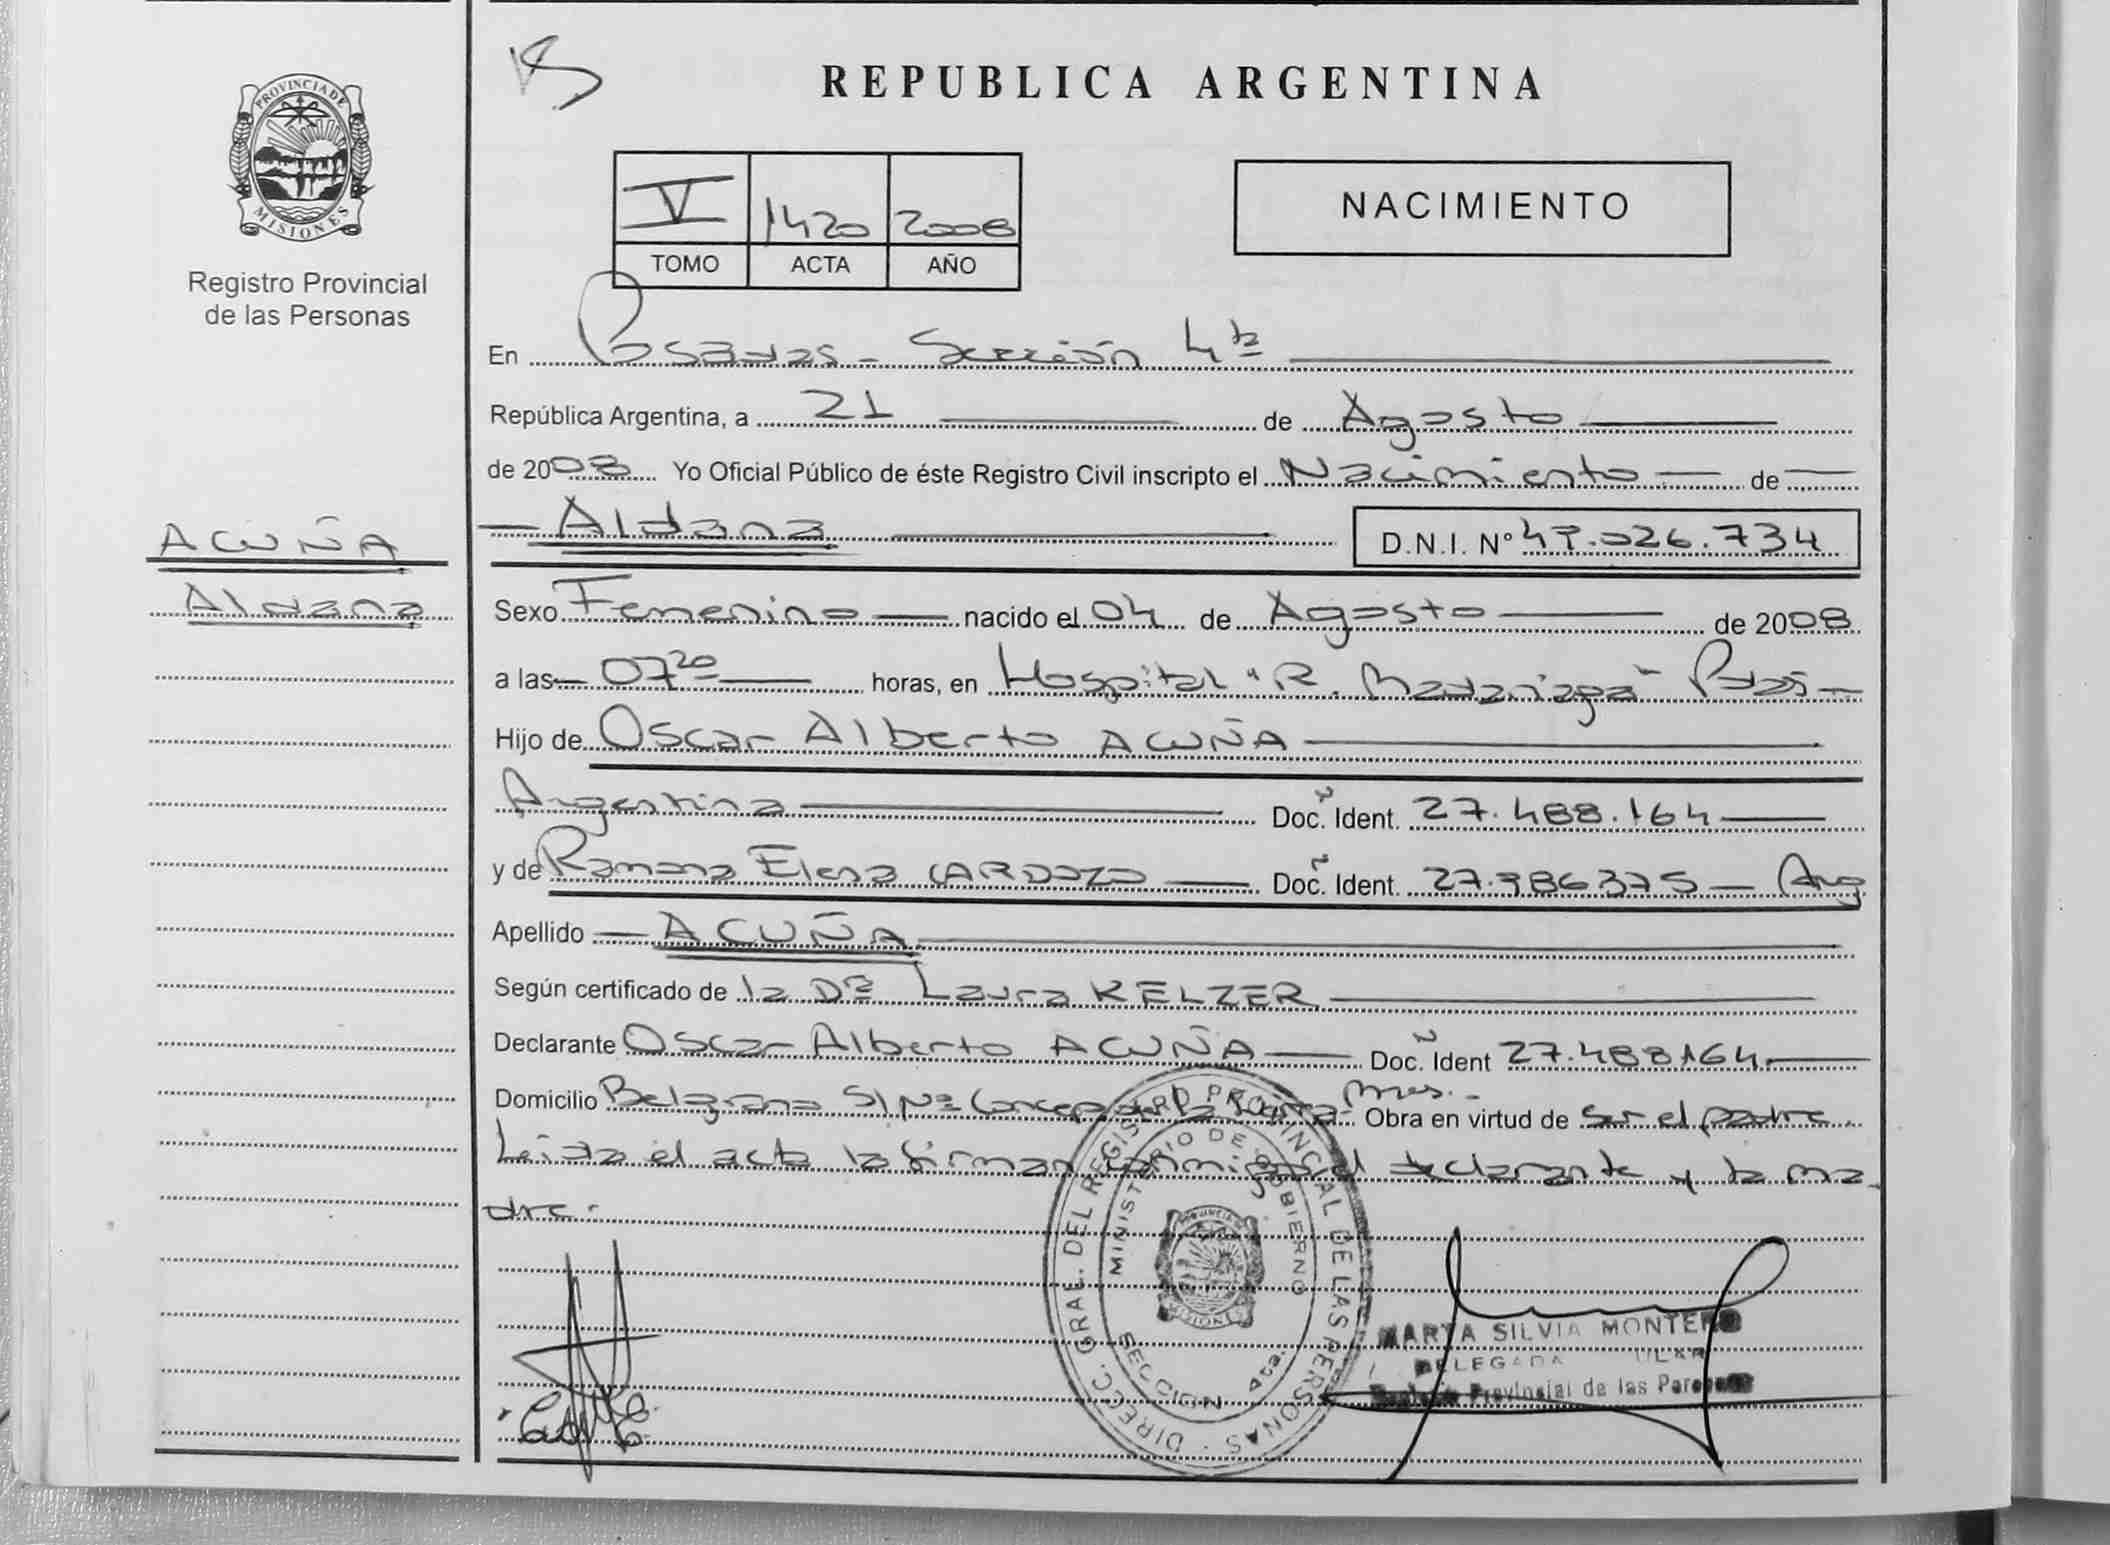 PROVINCIA DE
MISIONES
Registro Provincial
de las Personas
ACUÑA
Aldana
REPUBLICA ARGENTINA
V 1420 2008
TOMO ACTA AÑO
NACIMIENTO
En Posadas - Sección 4ta
República Argentina, a 21 de Agosto
de 2008 Yo Oficial Público de éste Registro Civil inscripto el Nacimiento de
Aldana D.N.I. Nº 47.026.734
Sexo Femenino nacido el 04 de Agosto de 2008
a las 07 20 horas, en Hospital "R. Madariaga" Pdas
Hijo de Oscar Alberto ACUÑA
Argentina Doc. Ident. 27.488.164
y de Ramona Elena CARDOZO Doc. Ident. 27.386375 - Arg
Apellido ACUÑA
Según certificado de la Dra Laura KELZER
Declarante Oscar Alberto ACUÑA Doc. Ident 27.488164
Domicilio Belgrano S/Nº Concep de la Sierra Mnes. Obra en virtud de ser el padre.
Leida el acta la firman conmigo el declarante y la ma
dre.
DIRECC. GRAL. DEL REGISTRO PROVINCIAL DE LAS PERSONAS
MINISTERIO DE GOBIERNO
SECCION 4ta.
MARTA SILVIA MONTERO
DELEGADA
Provincial de las Personas